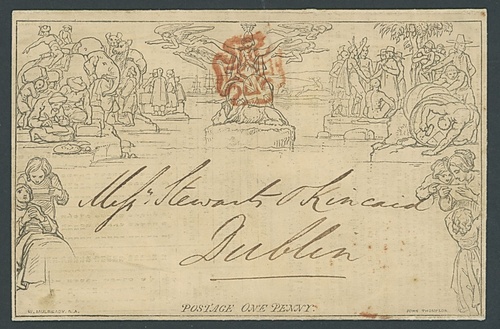 Messrs. Stewarts & Kincaid
Dublin
POSTAGE ONE PENNY.
W. MULREADY. R.A.
JOHN THOMPSON